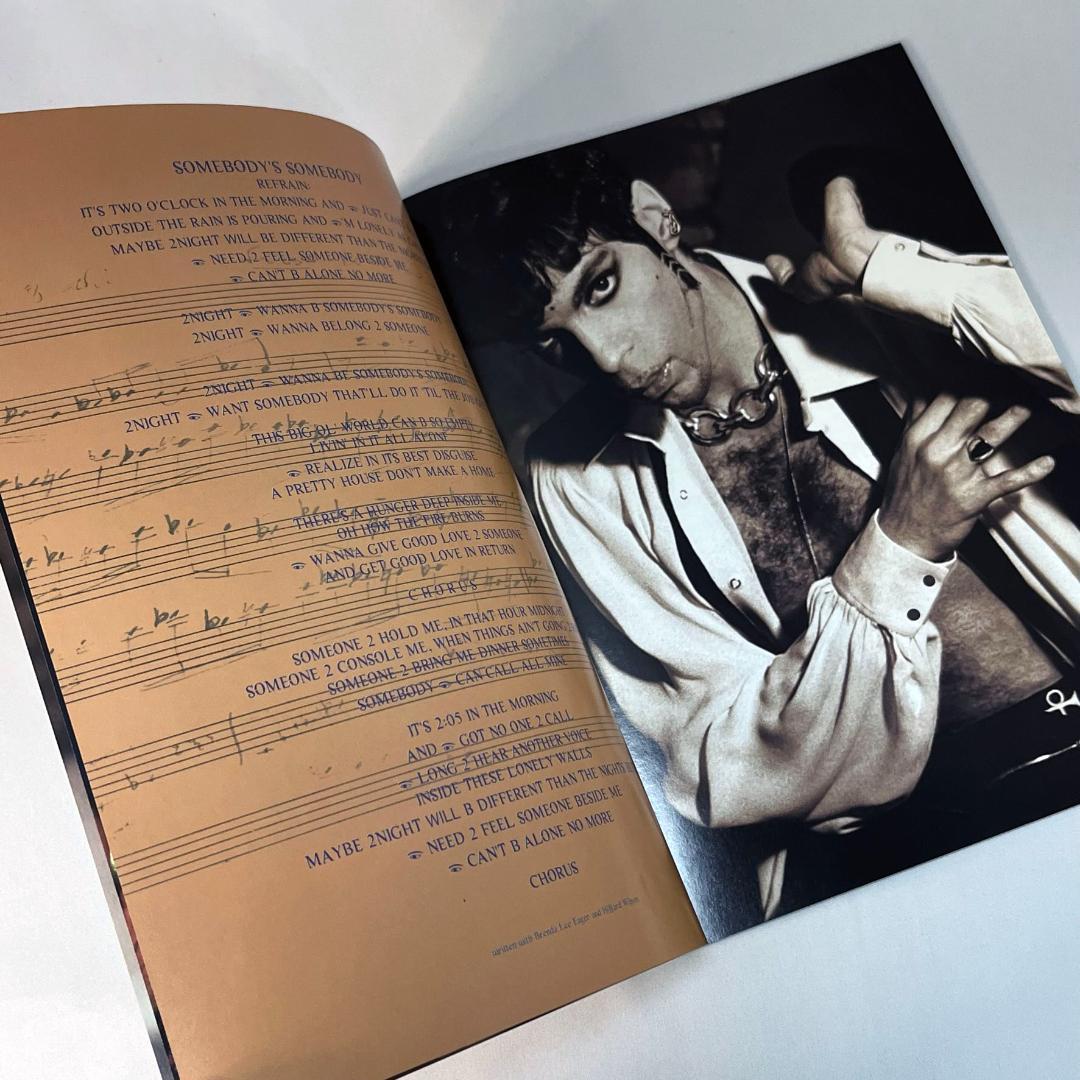 SOMEBODY'S SOMEBODY
REFRAIN:
IT'S TWO O'CLOCK IN THE MORNING AND 👁 JUST
OUTSIDE THE RAIN IS POURING AND 👁'M LONELY
MAYBE 2NIGHT WILL BE DIFFERENT THAN THE
👁 NEED 2 FEEL SOMEONE BESIDE ME
👁 CAN'T B ALONE NO MORE
2NIGHT 👁 WANNA B SOMEBODY'S SOMEBODY
2NIGHT 👁 WANNA BELONG 2 SOMEONE
2NIGHT 👁 WANNA BE SOMEBODY'S SOMEBODY
2NIGHT 👁 WANT SOMEBODY THAT'LL DO IT 'TIL THE
THIS BIG OL' WORLD CAN B SO EMPTY
LIVIN' IN IT ALL ALONE
👁 REALIZE IN ITS BEST DISGUISE
A PRETTY HOUSE DON'T MAKE A HOME
THERE'S A HUNGER DEEP INSIDE ME
OH HOW THE FIRE BURNS
👁 WANNA GIVE GOOD LOVE 2 SOMEONE
AND GET GOOD LOVE IN RETURN
CHORUS
SOMEONE 2 HOLD ME, IN THAT HOUR MIDNIGHT
SOMEONE 2 CONSOLE ME, WHEN THINGS AIN'T GOING
SOMEONE 2 BRING ME DINNER SOMETIMES
SOMEBODY 👁 CAN CALL ALL MINE
IT'S 2:05 IN THE MORNING
AND 👁 GOT NO ONE 2 CALL
👁 LONG 2 HEAR ANOTHER VOICE
INSIDE THESE LONELY WALLS
MAYBE 2NIGHT WILL B DIFFERENT THAN THE NIGHTS
👁 NEED 2 FEEL SOMEONE BESIDE ME
👁 CAN'T B ALONE NO MORE
CHORUS
written with Brenda Lee Eager and Hilliard Wilson